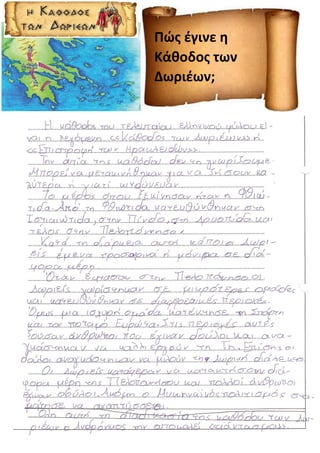 Η ΚΑΘΟΔΟΣ
ΤΩΝ ΔΩΡΙΕΩΝ
Πώς έγινε η
Κάθοδος των
Δωριέων;
Η κάθοδος του τελευταίου ελληνικού φύλου εί-
ναι η λεγόμενη «Κάθοδος των Δωριέων» ή
«Επιστροφή των Ηρακλειδών».
Την αιτία της καθόδου δεν τη γνωρίζουμε
Μπορεί να μετακινήθηκαν για να ζήσουν κα-
λύτερα ή γιατί κινδύνευαν.
Το μέρος όπου ξεκίνησαν ήταν η Φθιώ-
τιδα. Από τη Φθιώτιδα κατευθύνθηκαν στη
Ιστιαιώτιδα, στην Πίνδο, στη Δρυοπίδα και
τέλος στην Πελοπόννησο.
Κατά τη διάρκεια αυτή κάποιοι Δωρι-
είς έμεναν προσωρινά ή μόνιμα σε διά-
φορα μέρη.
Όταν έφτασαν στην Πελοπόννησο οι
Δωριείς χωρίστηκαν σε μικρότερες ομάδες
και κατευθύνθηκαν σε διαφορετικές περιοχές.
Όμως μια ισχυρή ομάδα κατέκτησε τη Σπάρτη
και τον ποταμό Ευρώτα. Στις περιοχές αυτές
ζούσαν άνθρωποι που έγιναν δούλοι και ανα-
γκάστηκαν να καλλιεργούν τη γη. Επίσης οι
δούλοι αναγκάστηκαν να μιλούν τη Δωρική διάλεκτο.
Οι Δωριείς κατάφεραν να κατακτήσουν διά-
φορα μέρη της Πελοποννήσου και πολλοί άνθρωποι
έγιναν δούλοι. Ακόμη ο Μυκηναϊκός πολιτισμός στα-
μάτησε να αναπτύσσεται.
Όλη αυτή τη διαδικασία της καθόδου των Δω-
ριέων ο